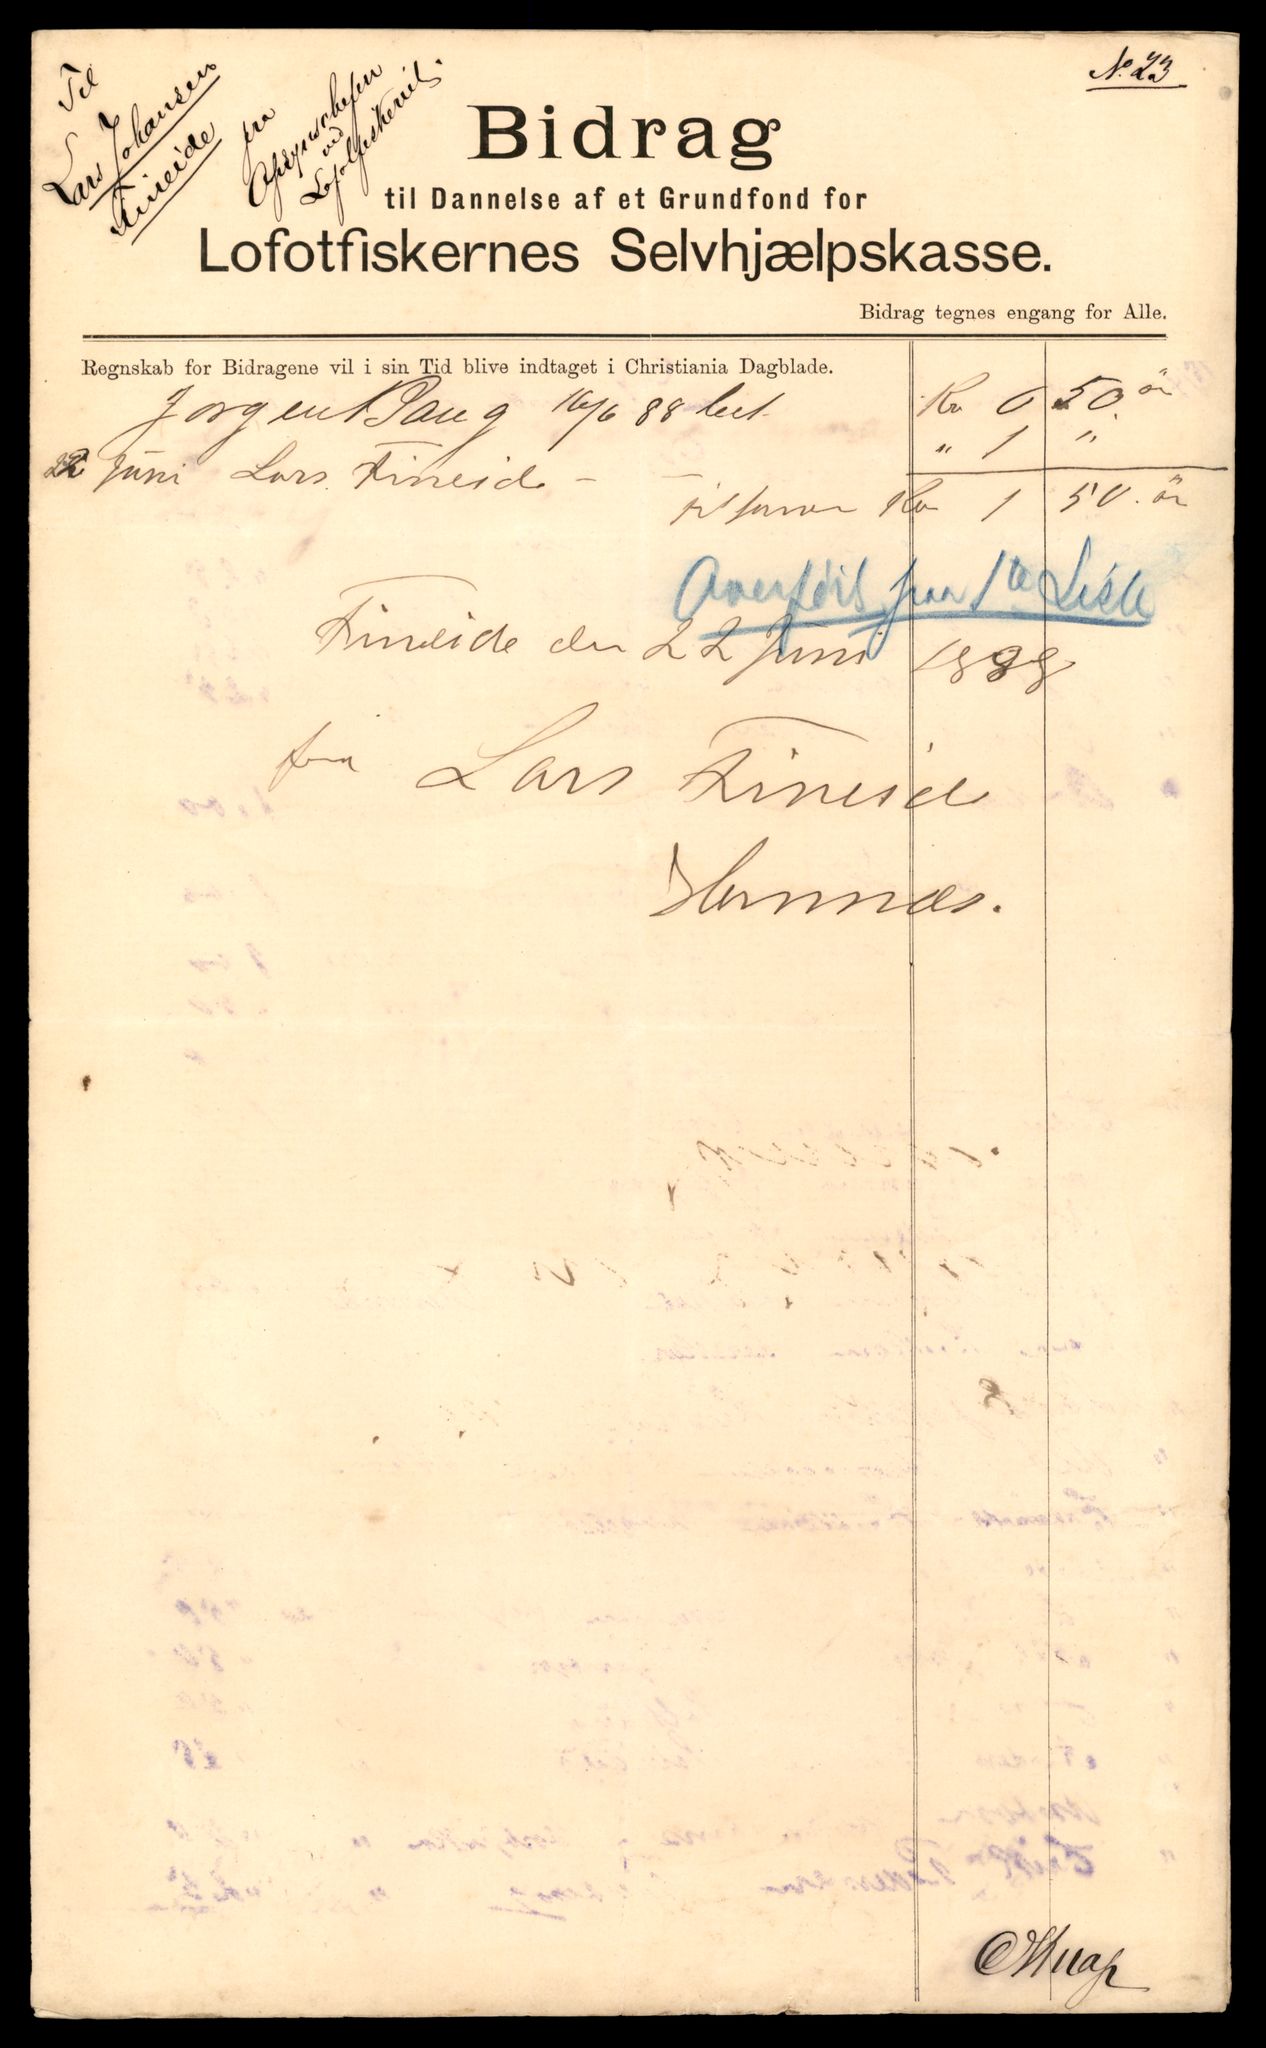 No. 23
Til
Lars Johansen
Fineide
fra
Opsynschefen
ved
Lofotfiskeriet.
Bidrag
til Dannelse af et Grundfond for
Lofotfiskernes Selvhjælpskasse.
Bidrag tegnes engang for Alle.
Regnskab for Bidragene vil i sin Tid blive indtaget i Christiania Dagblade.
Jørgen 16/6 88 bet Kr 0 50 ør
22 Juni Lars Fineide - " 1 "
Tilsaman Kr 1 50 ør
Overført fra 1te Liste
Fineide den 22 Juni 1888
fra Lars Fineide
Hemnæs.
Knap